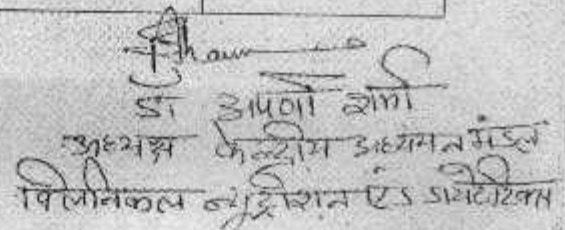 डॉ अपर्णा शर्मा
अध्यक्ष केन्द्रीय अध्ययन मंडल
क्लिनिकल न्यूट्रीशन एंड डायटेटिक्स